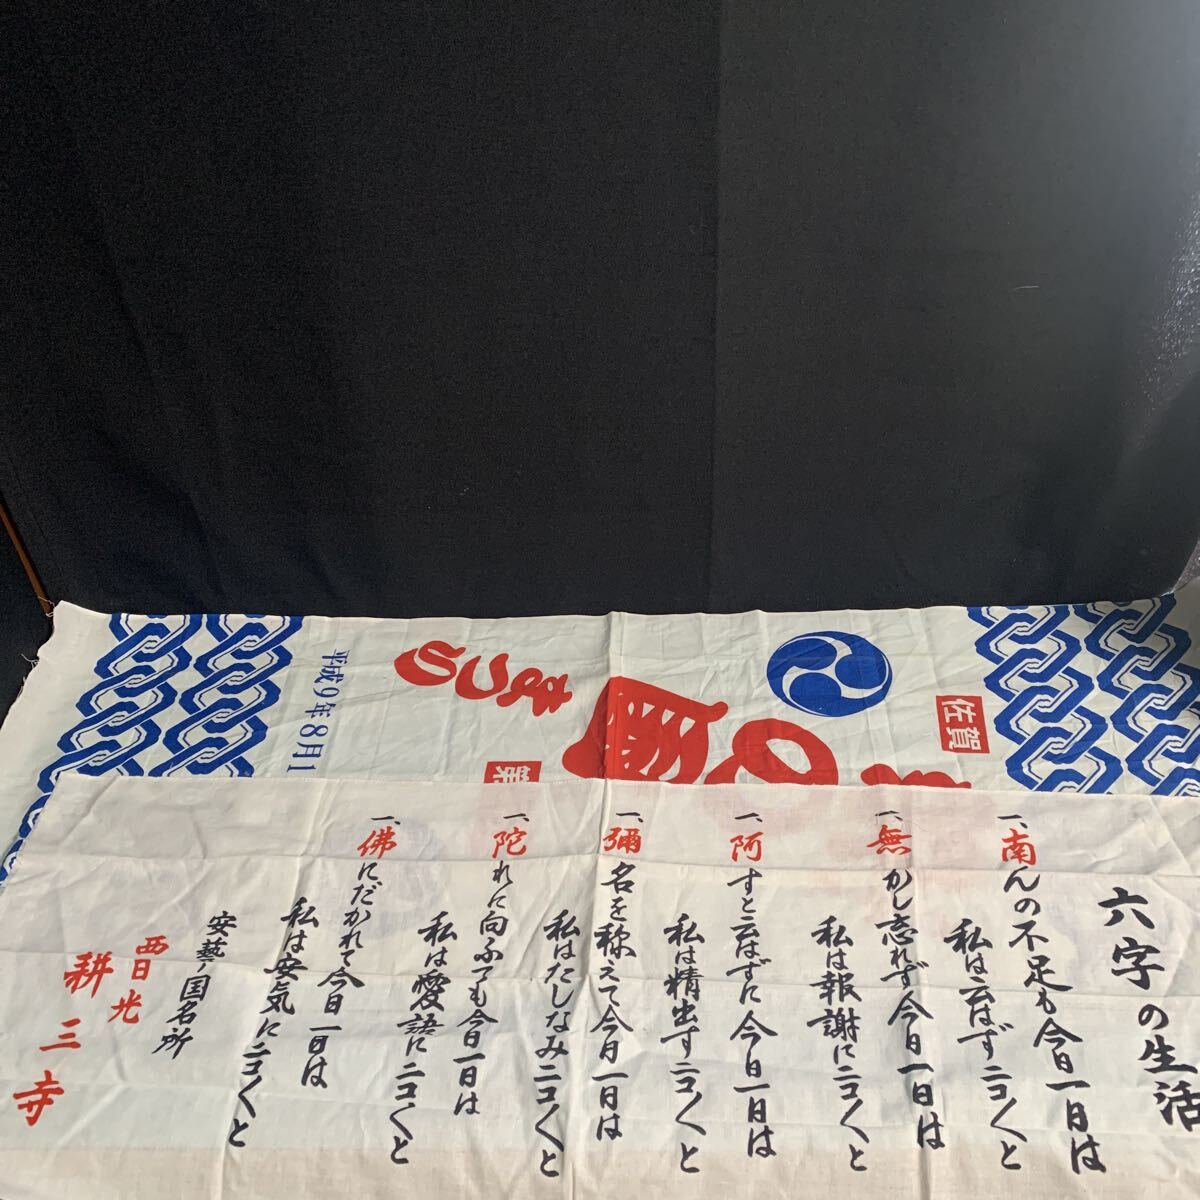 佐賀
まつり
第
平成9年8月1
六字の生活
一、南んの不足も今日一日は
私は云はずニコ〱と
一、無かし忘れず今日一日は
私は報謝にニコ〱と
一、阿すと云はずに今日一日は
私は精出すニコ〱と
一、彌名を称えて今日一日は
私はたしなみニコ〱と
一、陀れに向ふても今日一日は
私は愛語にニコ〱と
一、佛にだかれて今日一日は
私は安気にニコ〱と
安藝ノ国名所
西日光
耕三寺